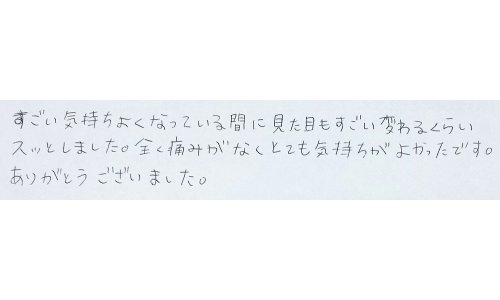 すごい気持ちよくなっている間に見た目もすごい変わるくらい
スッとしました。全く痛みがなくとても気持ちがよかったです。
ありがとうございました。